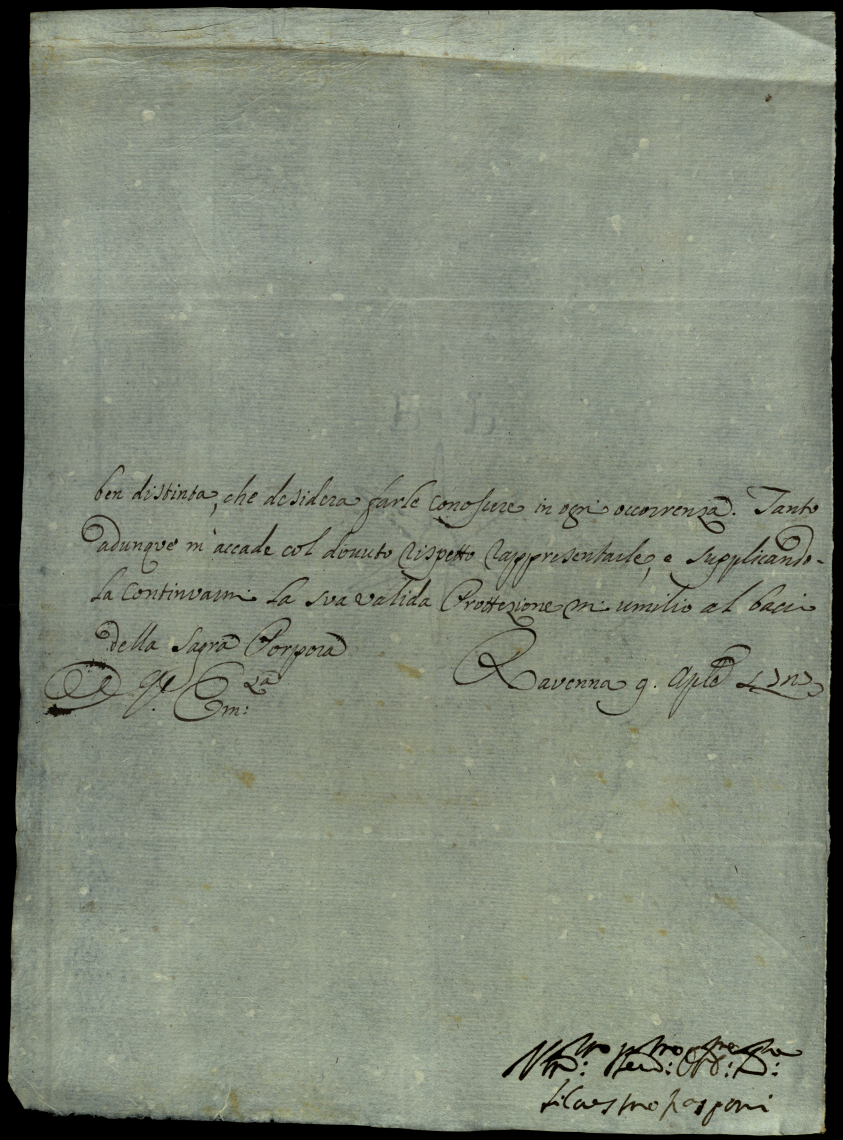 ben distinta, che desidera farle conoscere in ogni occorrenza. Tanto
adunque m'accade col dovuto rispetto rappresentarle, e supplicando-
la continuarmi la sua valida Protezione mi umilio al bacio
della Sagra Porpora
Em:za Ravenna 9. Aple
Silvestro Rasponi